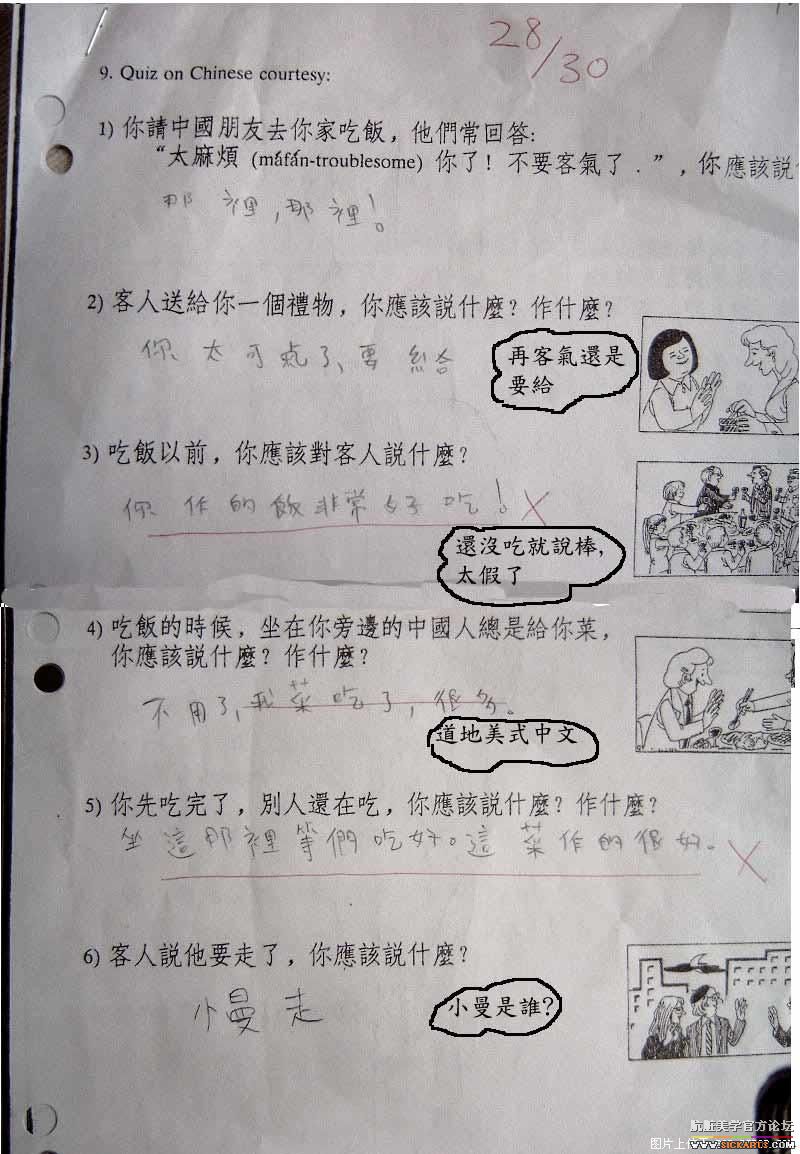 28/30
9. Quiz on Chinese courtesy:
1) 你請中國朋友去你家吃飯，他們常回答:
“太麻煩 (máfán-troublesome) 你了！不要客氣了．”，你應該説
那裡，那裡！
2) 客人送給你一個禮物，你應該説什麼？作什麼？
你太可氣了、要給
再客氣還是
要給
3) 吃飯以前，你應該對客人説什麼？
你作的飯非常好吃！ X
還沒吃就說棒，
太假了
4) 吃飯的時候，坐在你旁邊的中國人總是給你菜，
你應該説什麼？作什麼？
不用了，我菜吃了，很多。
道地美式中文
5) 你先吃完了，別人還在吃，你應該説什麼？作什麼？
坐這那裡等們吃好。這菜作的很好。 X
6) 客人説他要走了，你應該説什麼？
小曼走
小曼是誰？
骯髒美学官方论坛
图片上
www.SICKARTS.com